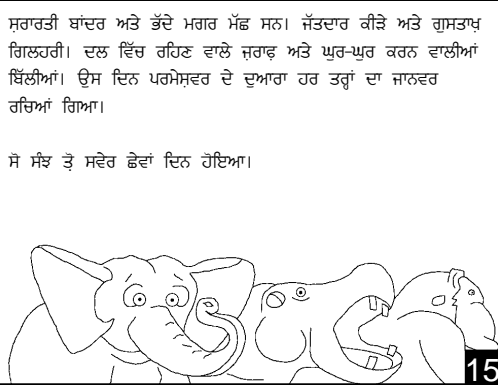 ਸ਼ਰਾਰਤੀ ਬਾਂਦਰ ਅਤੇ ਭੱਦੇ ਮਗਰ ਮੱਛ ਸਨ। ਜੱਤਦਾਰ ਕੀੜੇ ਅਤੇ ਗੁਸਤਾਖ਼
ਗਿਲਹਰੀ। ਦਲ ਵਿੱਚ ਰਹਿਣ ਵਾਲੇ ਜ਼ਰਾਫ਼ ਅਤੇ ਘੁਰ-ਘੁਰ ਕਰਨ ਵਾਲੀਆਂ
ਬਿੱਲੀਆਂ। ਉਸ ਦਿਨ ਪਰਮੇਸ਼ਵਰ ਦੇ ਦੁਆਰਾ ਹਰ ਤਰ੍ਹਾਂ ਦਾ ਜਾਨਵਰ
ਰਚਿਆਂ ਗਿਆ।
ਸੋ ਸੰਝ ਤੋਂ ਸਵੇਰ ਛੇਵਾਂ ਦਿਨ ਹੋਇਆ।
15